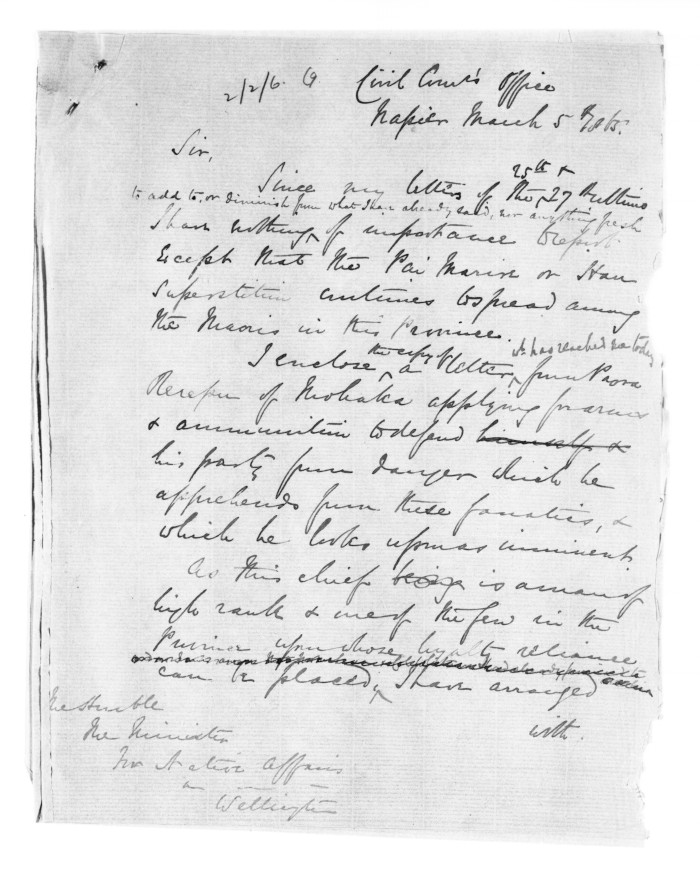 2/2/6. G. Civil Comrs Office
Napier March 5th 1865.
Sir,
25th &
Since my letters of the 27 Ultimo
to add to, or diminish from what I have already said, nor anything fresh
I have nothing of importance to report
Except that the Pai Marire or Hau
Superstition continues to spread among
the Maoris in this Province.
the copy of wh. has reached me today
I enclose a letter, from Paora
Rerepu of Mohaka applying for arms
& ammunition to defend himself &
his party from danger which he
apprehends from these fanatics, &
which he looks upon as imminent
As this chief being is a man of
high rank & one of the few in the
Province upon whose loyalty reliance
can be placed, I have arranged
with.
The Honble
The Minister
For Native Affairs
Wellington